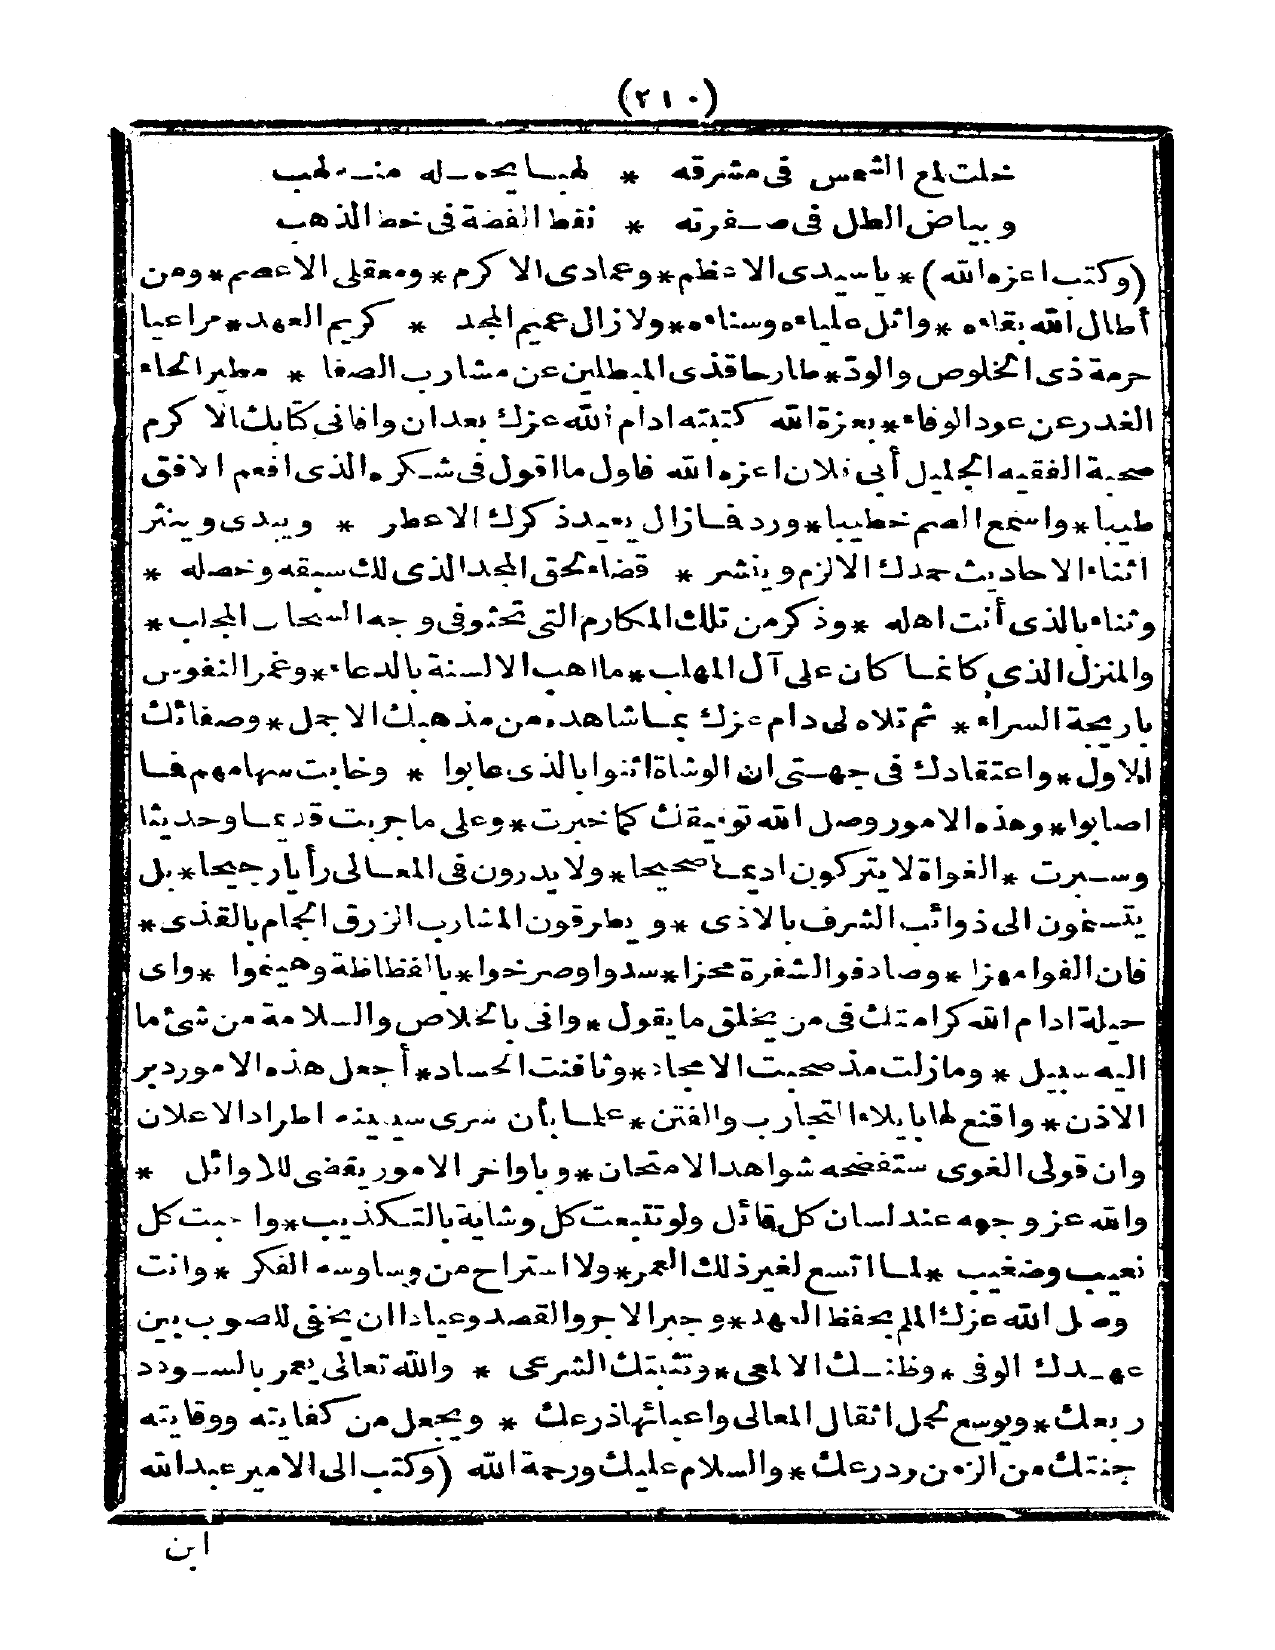 (٢١٠)
خلت لمع الشمس فى مشرقه * لهبا يحمله منه لهب
وبياض الطل فى صفرته * نقط الفضة فى خط الذهب
(وكتب اعزه الله) * ياسيدى الاعظم * وعمادى الاكرم * ومعقلى الاعصم * ومن
أطال الله بقاءه * واثل علياءه وسناءه * ولازال عميم المجد * كريم العهد * مراعيا
حرمة ذى الخلوص والود * طارحا قذى المبطلين عن مشارب الصفا * مطير الحاء
الغدر عن عود الوفاء * بعزة الله كتبته ادام الله عزك بعد ان وافانى كتابك الاكرم
صحبة الفقيه الجليل أبى فلان اعزه الله فاول ما اقول فى شكره الذى افعم الافق
طيبا * واسمع الصم خطيبا * ورد فازال يعيد ذكرك الاعطر * ويبدى وينثر
اثناء الاحاديث حمدك الالزم وينشر * قضاء لحق المجد الذى لك سبقه وخصله *
وثناء بالذى أنت اهله * وذكر من تلك المكارم التى تحثو فى وجه السحاب المجلب *
والمنزل الذى كاغا كان على آل المهلب * ما اهب الالسنة بالدعاء * وغمر النفوس
باريحة السراء * ثم تلاه لى دام عزك بما شاهده من مذهبك الاجمل * وصفائك
الاول * واعتقادك فى جهتى ان الوشاة اثنوا بالذى عابوا * وخابت سهامهم فما
اصابوا * وهذه الامور وصل الله توفيقك كما خبرت * وعلى ما جربت قديما وحديثا
وسبرت * الغواة لا يتركون اديما صحيحا * ولا يدرون فى المعالى رأيا رجيحا * بل
يتسغون الى ذوائب الشرف بالاذى * ويطرقون المشارب الزرق الجمام بالقذى *
فان الفوا مهزا * وصادفوا الشفرة محزا * سدوا وصرخوا * بالفظاظة وهينموا * واى
حيلة ادام الله كرامتك فى من يخلق ما يقول * وانى بالخلاص والسلامة من شئ ما
اليه سبيل * ومازلت مذ صحبت الامجاد * وثافنت الحساد * أجعل هذه الامور دبر
الاذن * واقنع لها ببلاء التجارب والفتن * علما بأن سرى سيبينه اطراد الاعلان
وان قولى الغوى ستفضحه شواهد الامتحان * وباواخر الامور يقضى للاوائل *
والله عز وجهه عند لسان كل قائل ولو تتبعت كل وشاية بالتكذيب * واجبت كل
نعيب وضغيب * لما اتسع لغير ذلك العمر * ولا استراح من وساوسه الفكر * وانت
وصل الله عزك الملم بحفظ العهد * وجبر الاجر والقصد وعياذا ان يخفى للصوب بين
عهدك الوفى * وظنك الالمعى * وتثبتك الشرعى * والله تعالى يعمر بالسودد
ربعك * ويوسع لحمل اثقال المعالى واعبائها ذرعك * ويجعل من كفايته ووقايته
جنتك من الزمن ودرعك * والسلام عليك ورحمة الله (وكتب الى الامير عبد الله
ابن